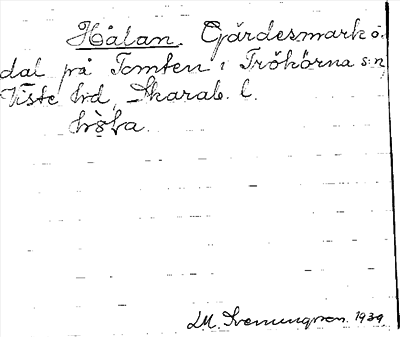 Hålan. Gärdesmark o.
dal på Tomten i Trökörna sn,
Viste hd, Skarab. l.
L.M. Svenungsson. 1939